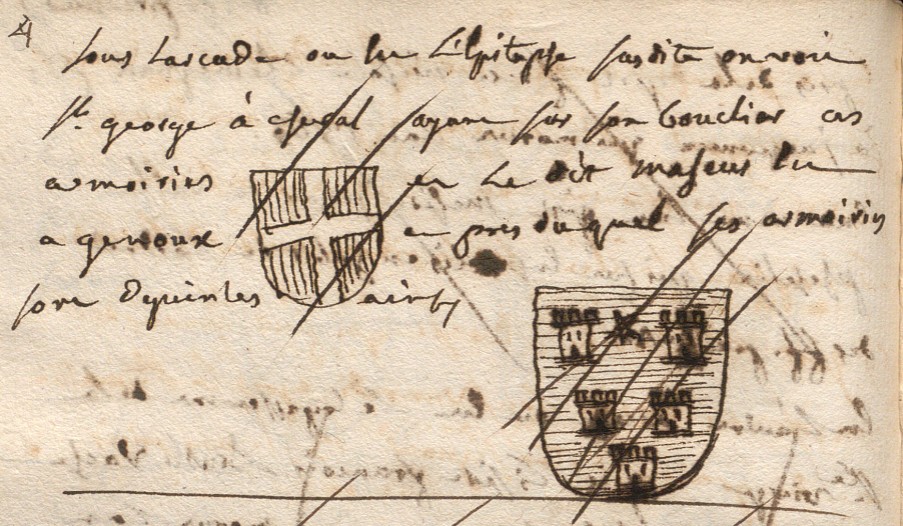 4
sous larcade ou lu L'Epitaphe susdite on voit
St. george à cheval ayant sur son bouclier ces
armoiries et Le dit majeur
a genoux et pres du quel ses armoiries
sont depeintes ainsy